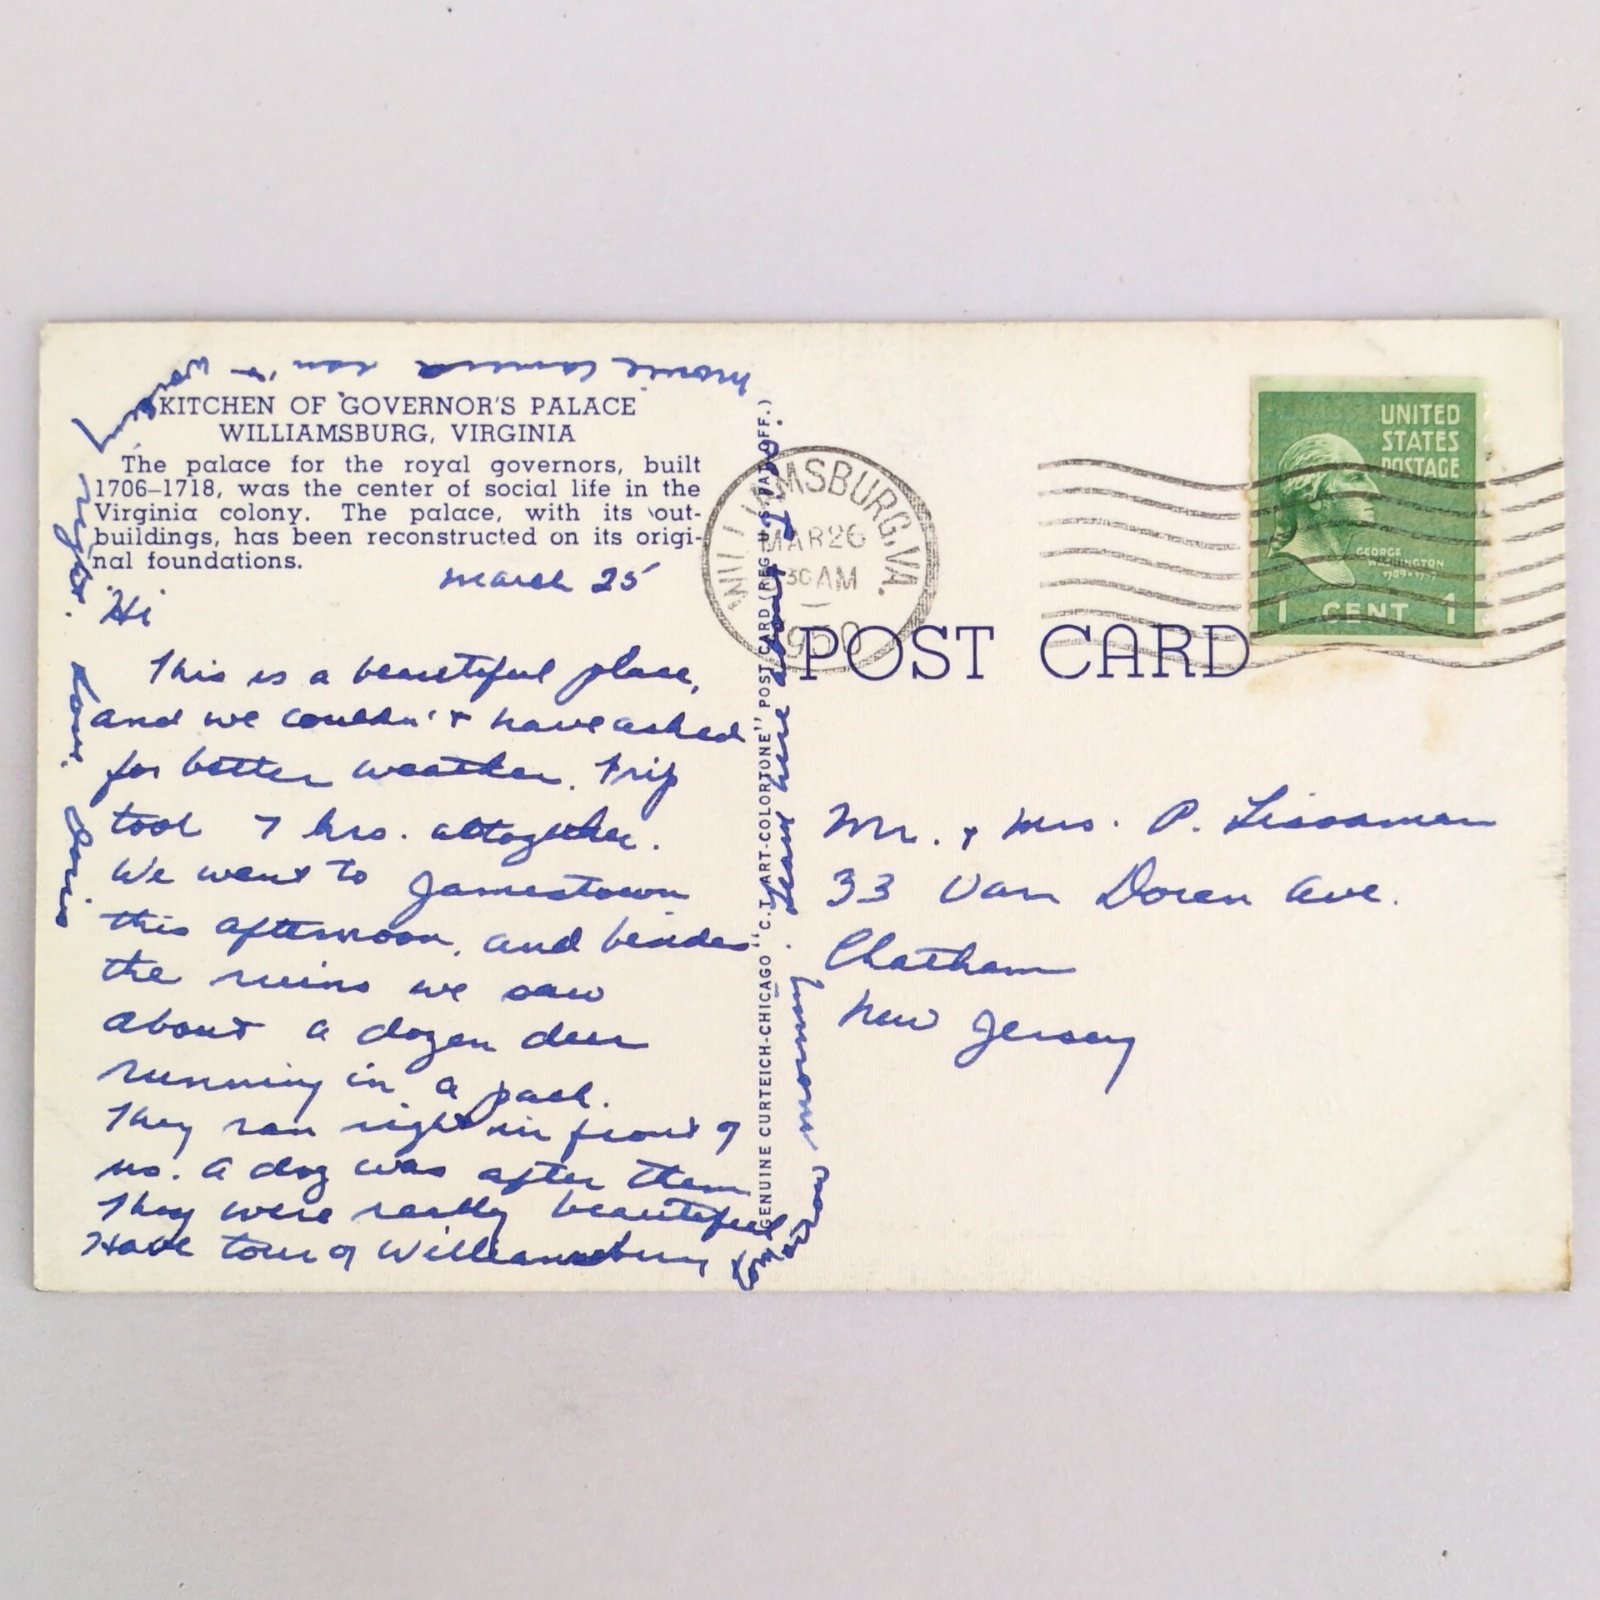 KITCHEN OF GOVERNOR'S PALACE
WILLIAMSBURG, VIRGINIA
The palace for the royal governors, built
1706–1718, was the center of social life in the
Virginia colony. The palace, with its out-
buildings, has been reconstructed on its origi-
nal foundations.
March 25
Hi
This is a beautiful place,
and we couldn't have asked
for better weather. Trip
took 7 hrs. altogether.
We went to Jamestown
this afternoon, and besides
the ruins we saw
about a dozen deer
running in a pack.
They ran right in front of
us. A dog was after them
They were really beautiful
Have tour of Williamsburg
tomorrow morning. Leave here about
movie camera isn't
working
right. Love, Doris
GENUINE CURTEICH-CHICAGO "C.T. ART-COLORTONE" POST CARD (REG. U.S. PAT. OFF.)
WILLIAMSBURG, VA.
MAR 26
30 AM
1950
UNITED
STATES
POSTAGE
GEORGE
WASHINGTON
1789-1797
1 CENT 1
POST CARD
Mr. + Mrs. P. Lissaman
33 Van Doren Ave.
Chatham
New Jersey